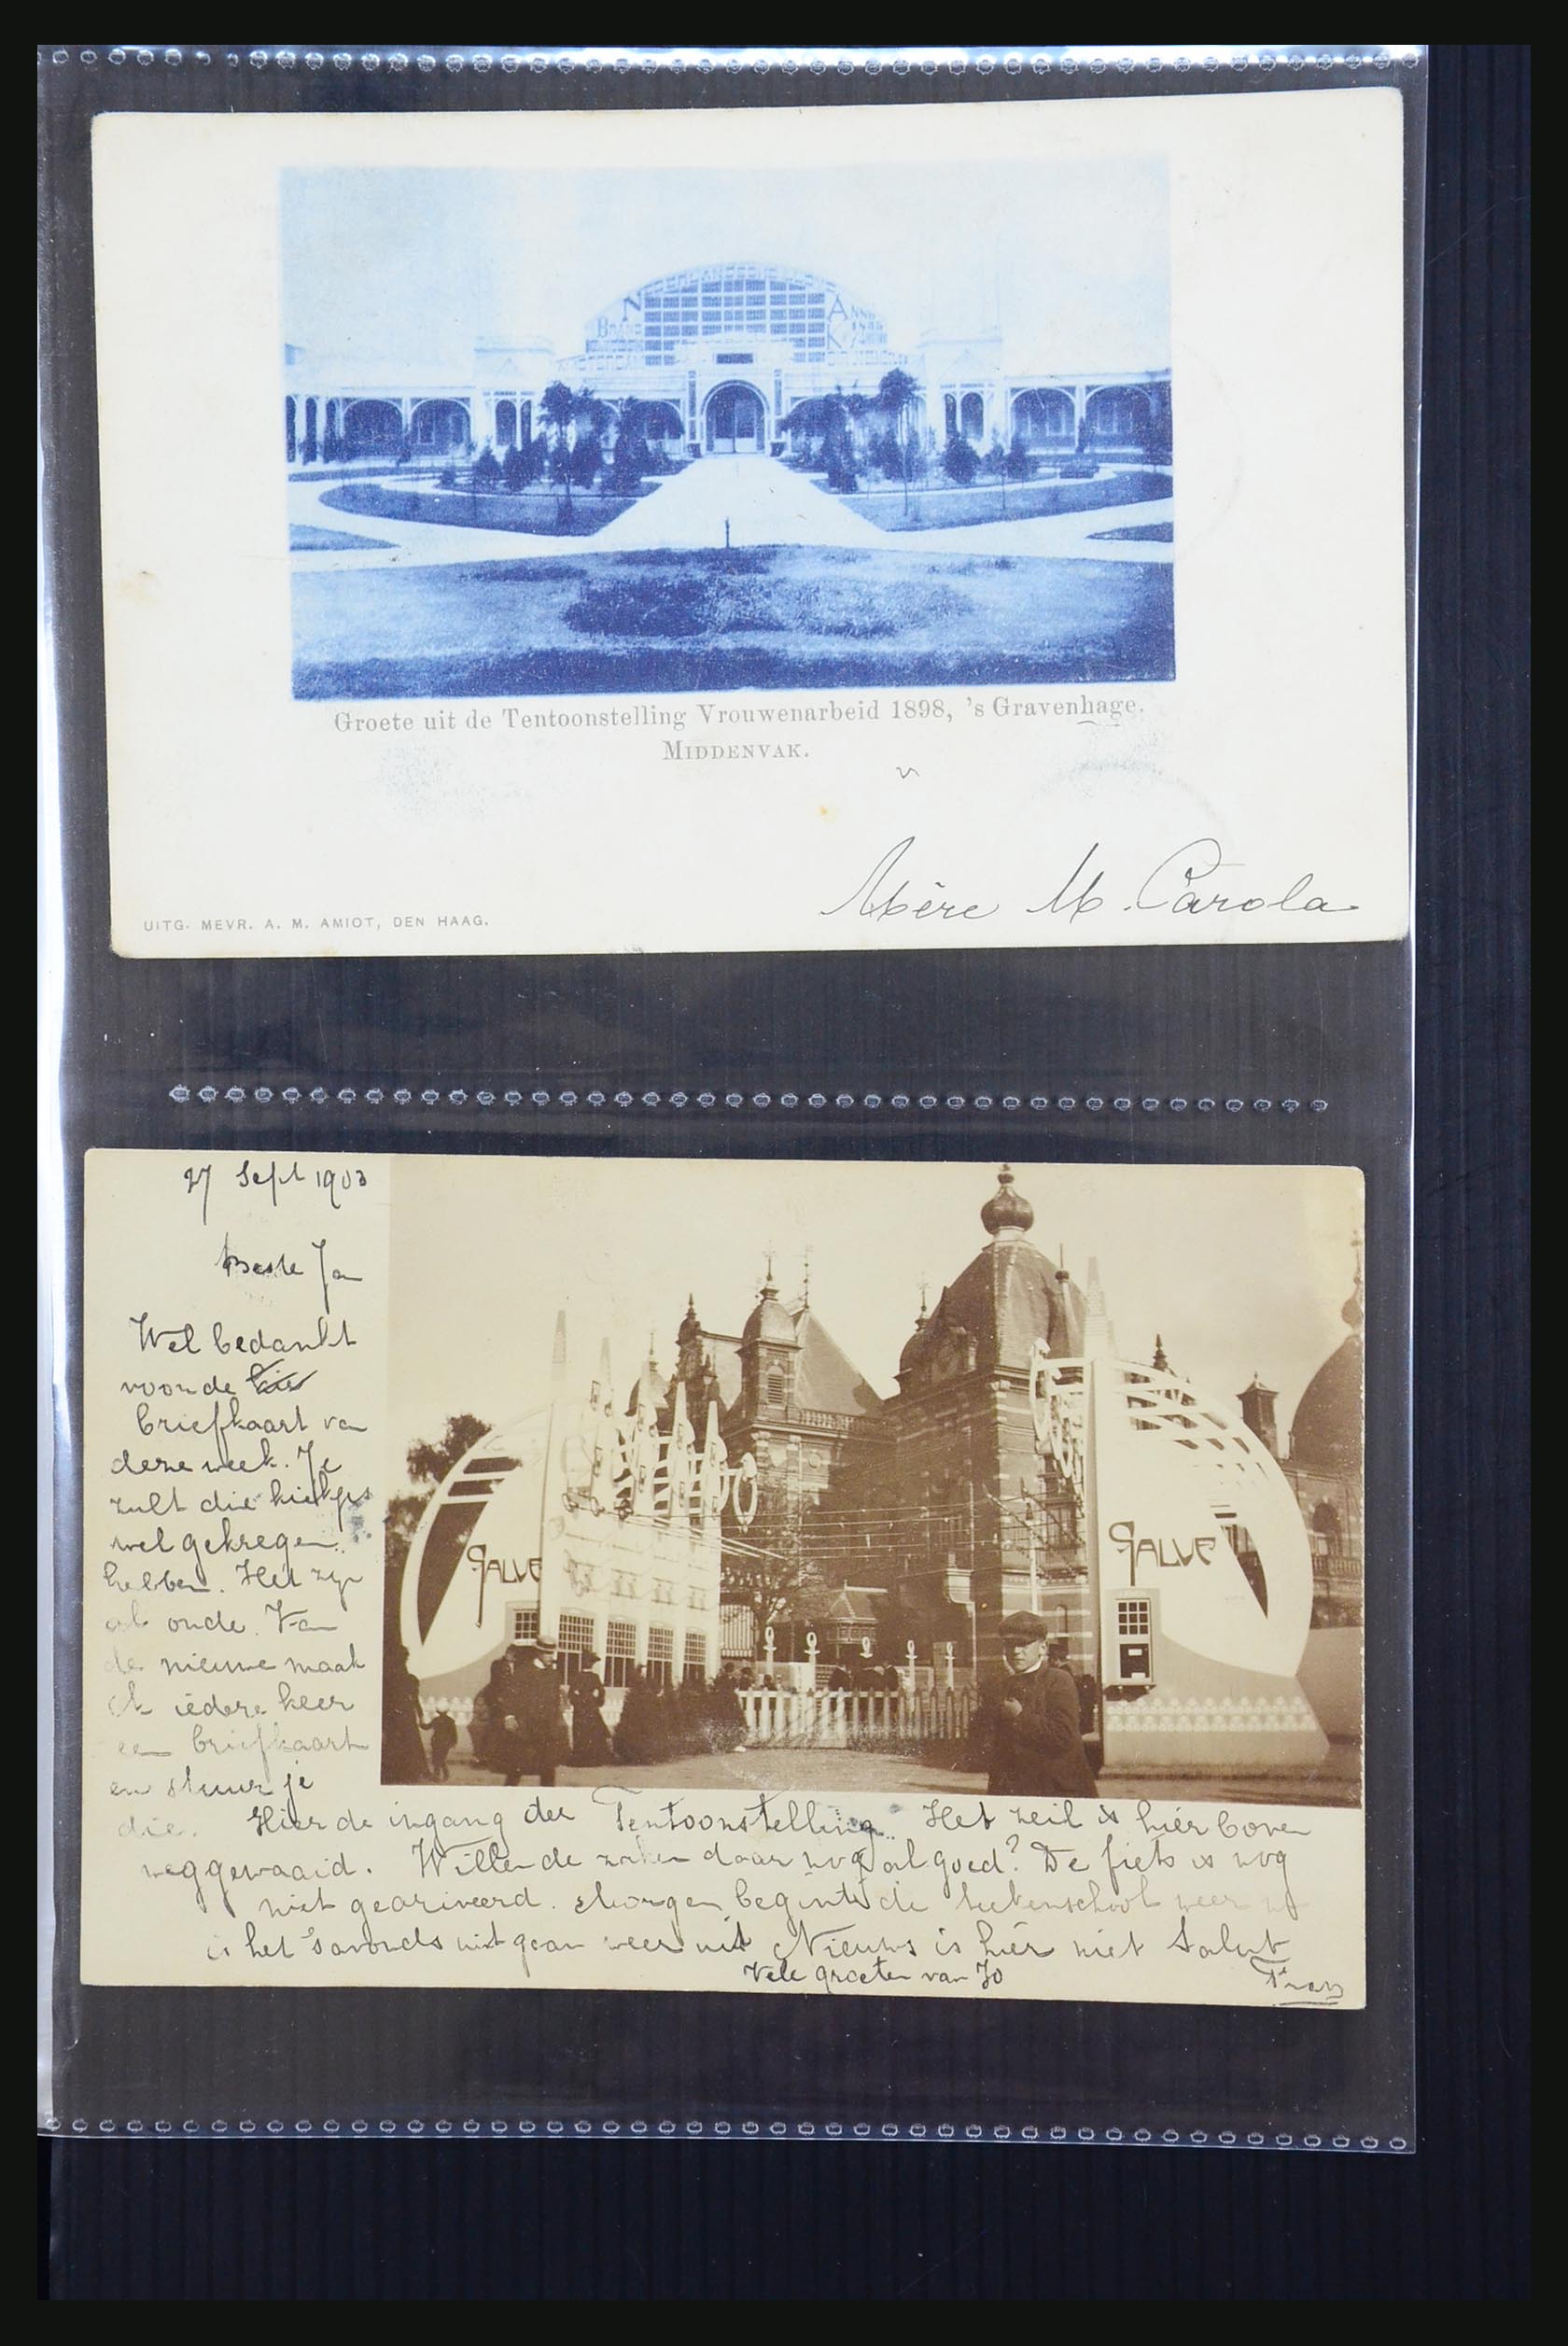 Groete uit de Tentoonstelling Vrouwenarbeid 1898, 's Gravenhage.
MIDDENVAK.
Mère M. Carola
UITG. MEVR. A. M. AMIOT, DEN HAAG.
27 Sept 1903
Beste Jan
Wel bedankt
voor de
briefkaart van
deze week. Je
zult die kiekjes
wel gekregen
hebben. Het zijn
al oude. Van
de nieuwe maak
ik iedere keer
een briefkaart
en stuur je
die. Hier de ingang der Tentoonstelling. Het zeil is hier boven
weggewaaid. Willen de zaken daar nog al goed? De fiets is nog
niet gearriveerd. Morgen begint de teekenschool weer
is het 's avonds uit gaan weer uit Nieuws is hier niet Saluut
Vele groeten van Jo
Frans
CALVE
CALVE